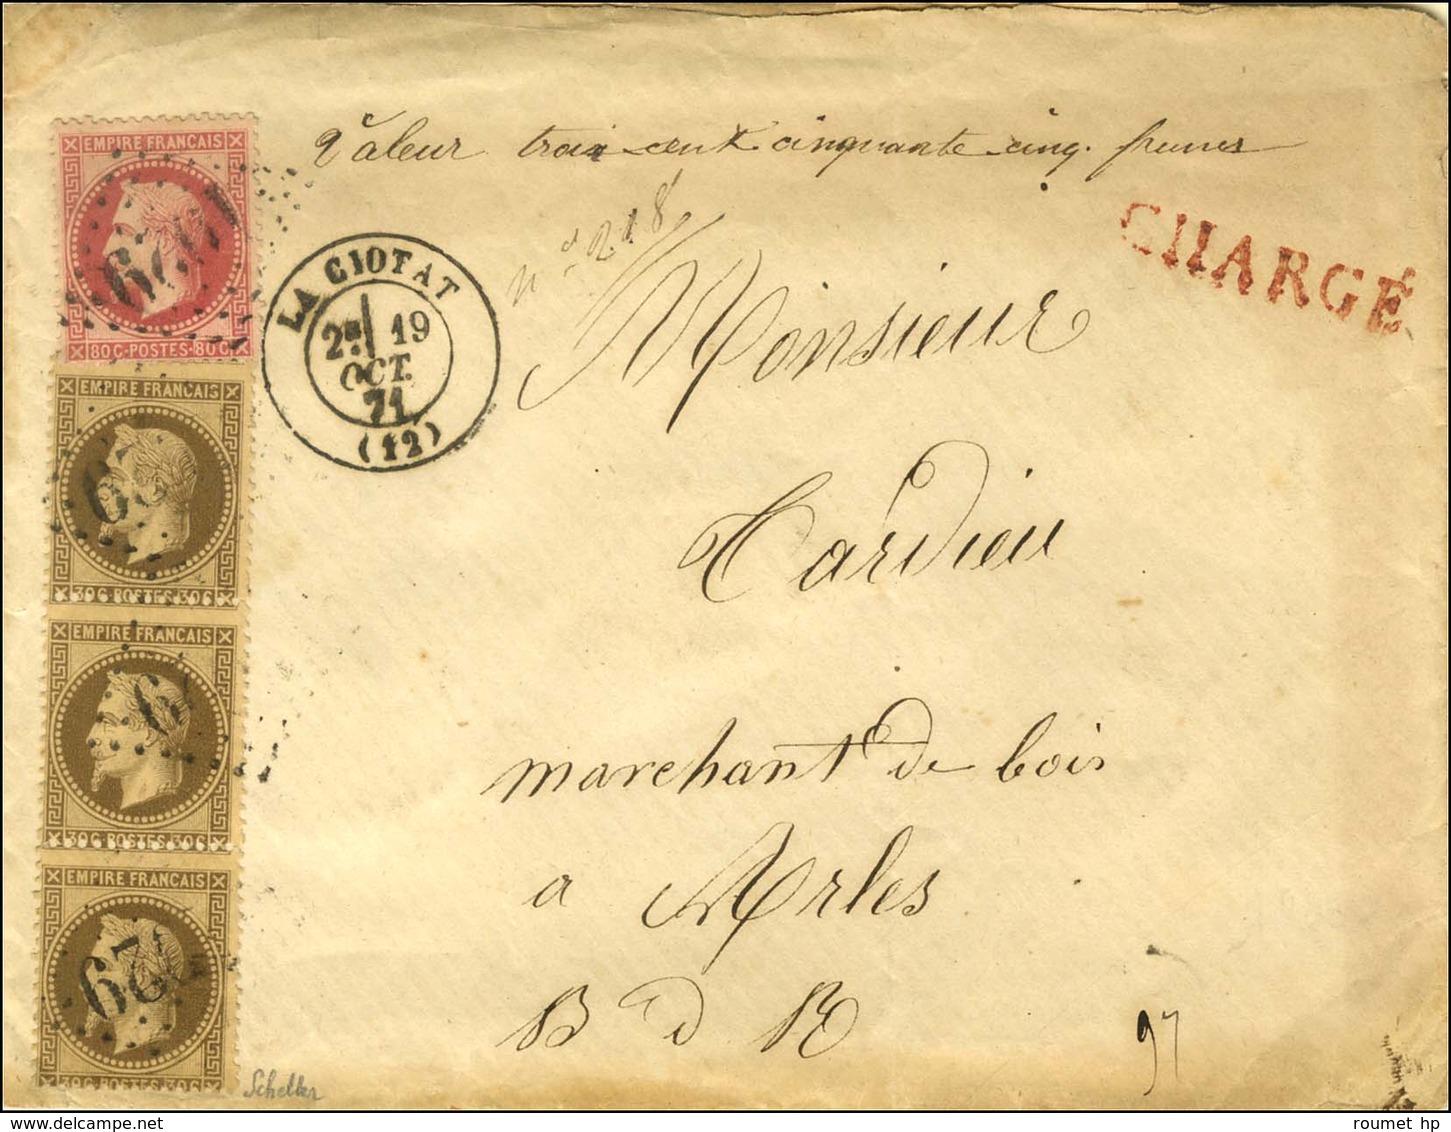 Valeur trois cent cinquante cinq francs
n° 218
CHARGÉ
EMPIRE FRANCAIS
80 C·POSTES·80 C
LA CIOTAT
2E 19
OCT.
71
(12)
Monsieur
EMPIRE FRANCAIS
30 C·POSTES·30 C
Tardieu
EMPIRE FRANCAIS
30 C·POSTES·30 C
marchant de bois
EMPIRE FRANCAIS
a Arles
B d R
97
30 C·POSTES·30 C
Scheller
roumet hp